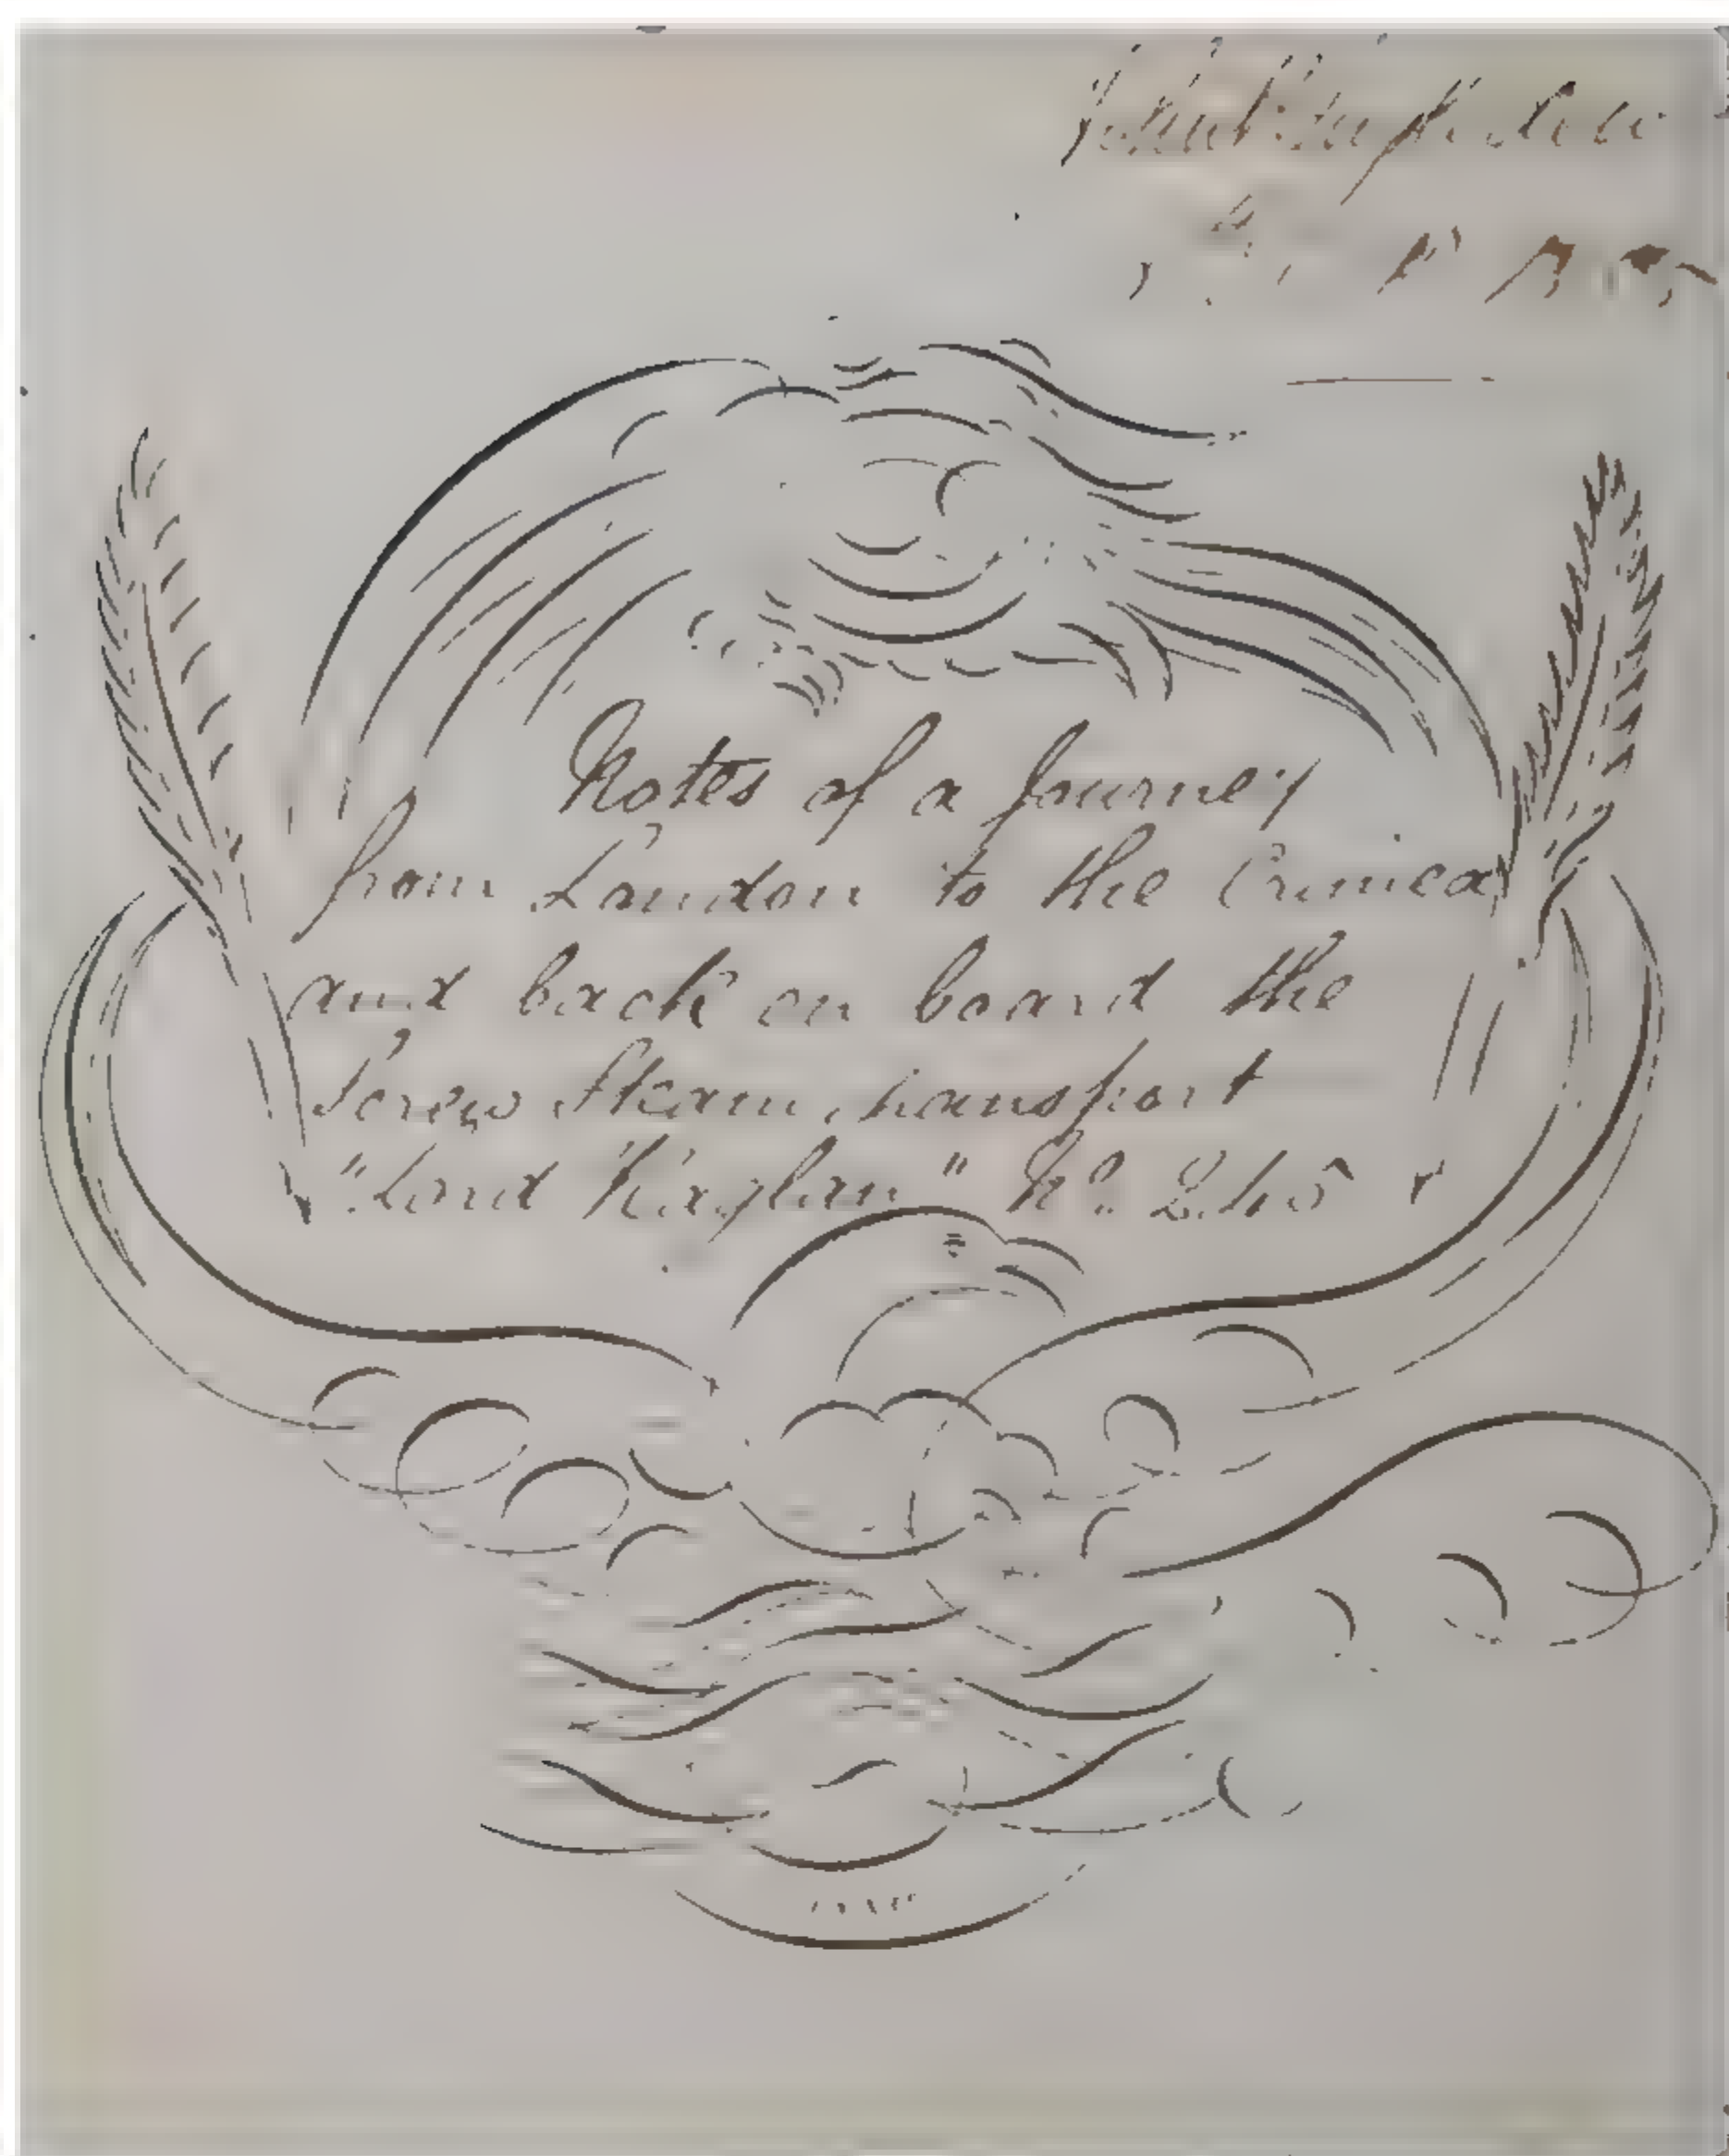 Notes of a Journey
from London to the Crimea
and back on board the
Screw Steam transport
"Lord Raglan" No.